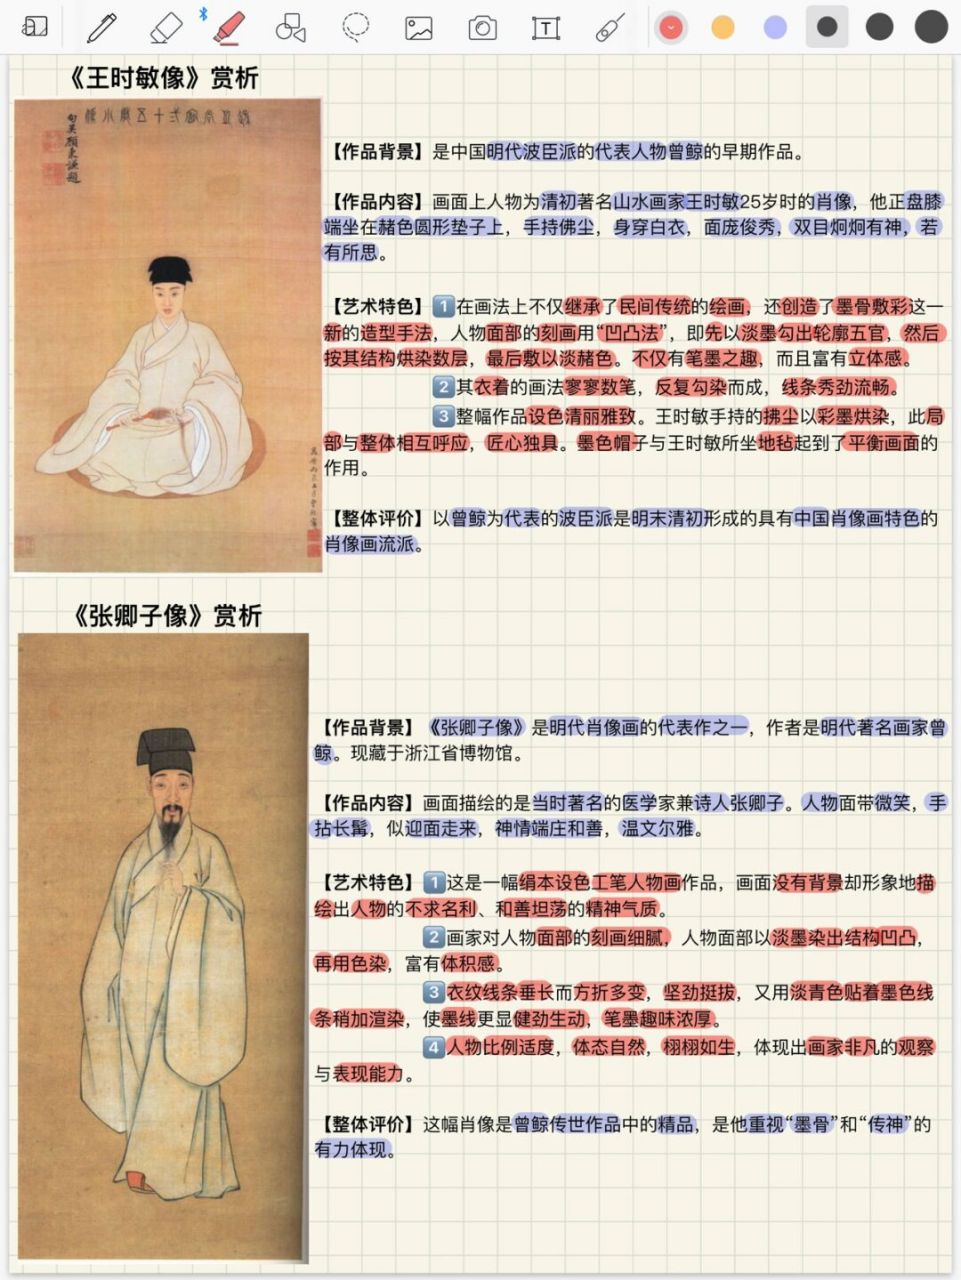 《王时敏像》赏析
【作品背景】是中国明代波臣派的代表人物曾鲸的早期作品。
【作品内容】画面上人物为清初著名山水画家王时敏25岁时的肖像，他正盘膝
端坐在赭色圆形垫子上，手持佛尘，身穿白衣，面庞俊秀，双目炯炯有神，若
有所思。
【艺术特色】1在画法上不仅继承了民间传统的绘画，还创造了墨骨敷彩这一
新的造型手法，人物面部的刻画用“凹凸法”，即先以淡墨勾出轮廓五官，然后
按其结构烘染数层，最后敷以淡赭色。不仅有笔墨之趣，而且富有立体感。
2其衣着的画法寥寥数笔，反复勾染而成，线条秀劲流畅。
3整幅作品设色清丽雅致。王时敏手持的拂尘以彩墨烘染，此局
部与整体相互呼应，匠心独具。墨色帽子与王时敏所坐地毡起到了平衡画面的
作用。
【整体评价】以曾鲸为代表的波臣派是明末清初形成的具有中国肖像画特色的
肖像画流派。
《张卿子像》赏析
【作品背景】《张卿子像》是明代肖像画的代表作之一，作者是明代著名画家曾
鲸。现藏于浙江省博物馆。
【作品内容】画面描绘的是当时著名的医学家兼诗人张卿子。人物面带微笑，手
拈长髯，似迎面走来，神情端庄和善，温文尔雅。
【艺术特色】1这是一幅绢本设色工笔人物画作品，画面没有背景却形象地描
绘出人物的不求名利、和善坦荡的精神气质。
2画家对人物面部的刻画细腻，人物面部以淡墨染出结构凹凸，
再用色染，富有体积感。
3衣纹线条垂长而方折多变，坚劲挺拔，又用淡青色贴着墨色线
条稍加渲染，使墨线更显健劲生动，笔墨趣味浓厚。
4人物比例适度，体态自然，栩栩如生，体现出画家非凡的观察
与表现能力。
【整体评价】这幅肖像是曾鲸传世作品中的精品，是他重视“墨骨”和“传神”的
有力体现。